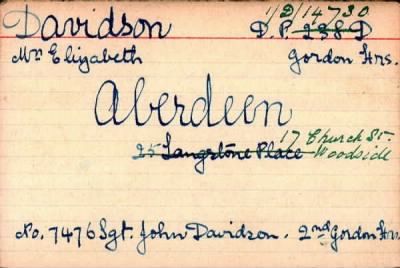 1/D/14730
Davidson D.P. 238D
Mrs Elizabeth Gordon Hrs.
Aberdeen
17 Church St.
25 Langstone Place Woodside
No. 7476 Sgt. John Davidson. 2nd Gordon Hrs.